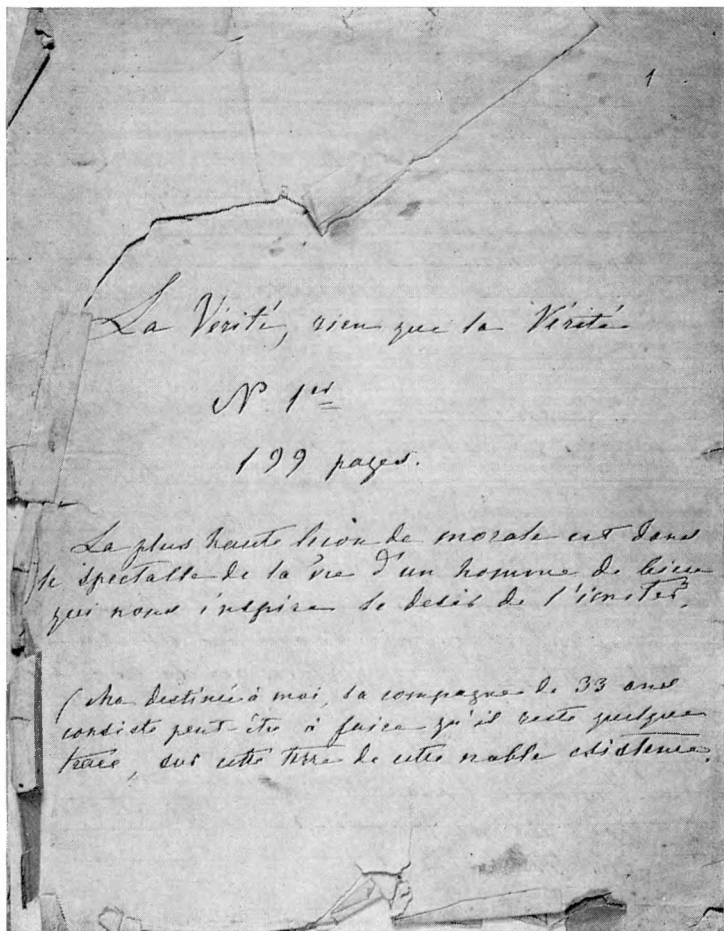 1
La Vérité, rien que la Vérité
N 1er
199 pages.
La plus haute leçon de morale est dans
le spectacle de la vie d'un homme de bien
qui nous inspire le desir de l'imiter.
(Ma destinée à moi, sa compagne de 33 ans
consiste peut-être à faire qu'il reste quelque
trace, sur cette terre de cette noble existence.